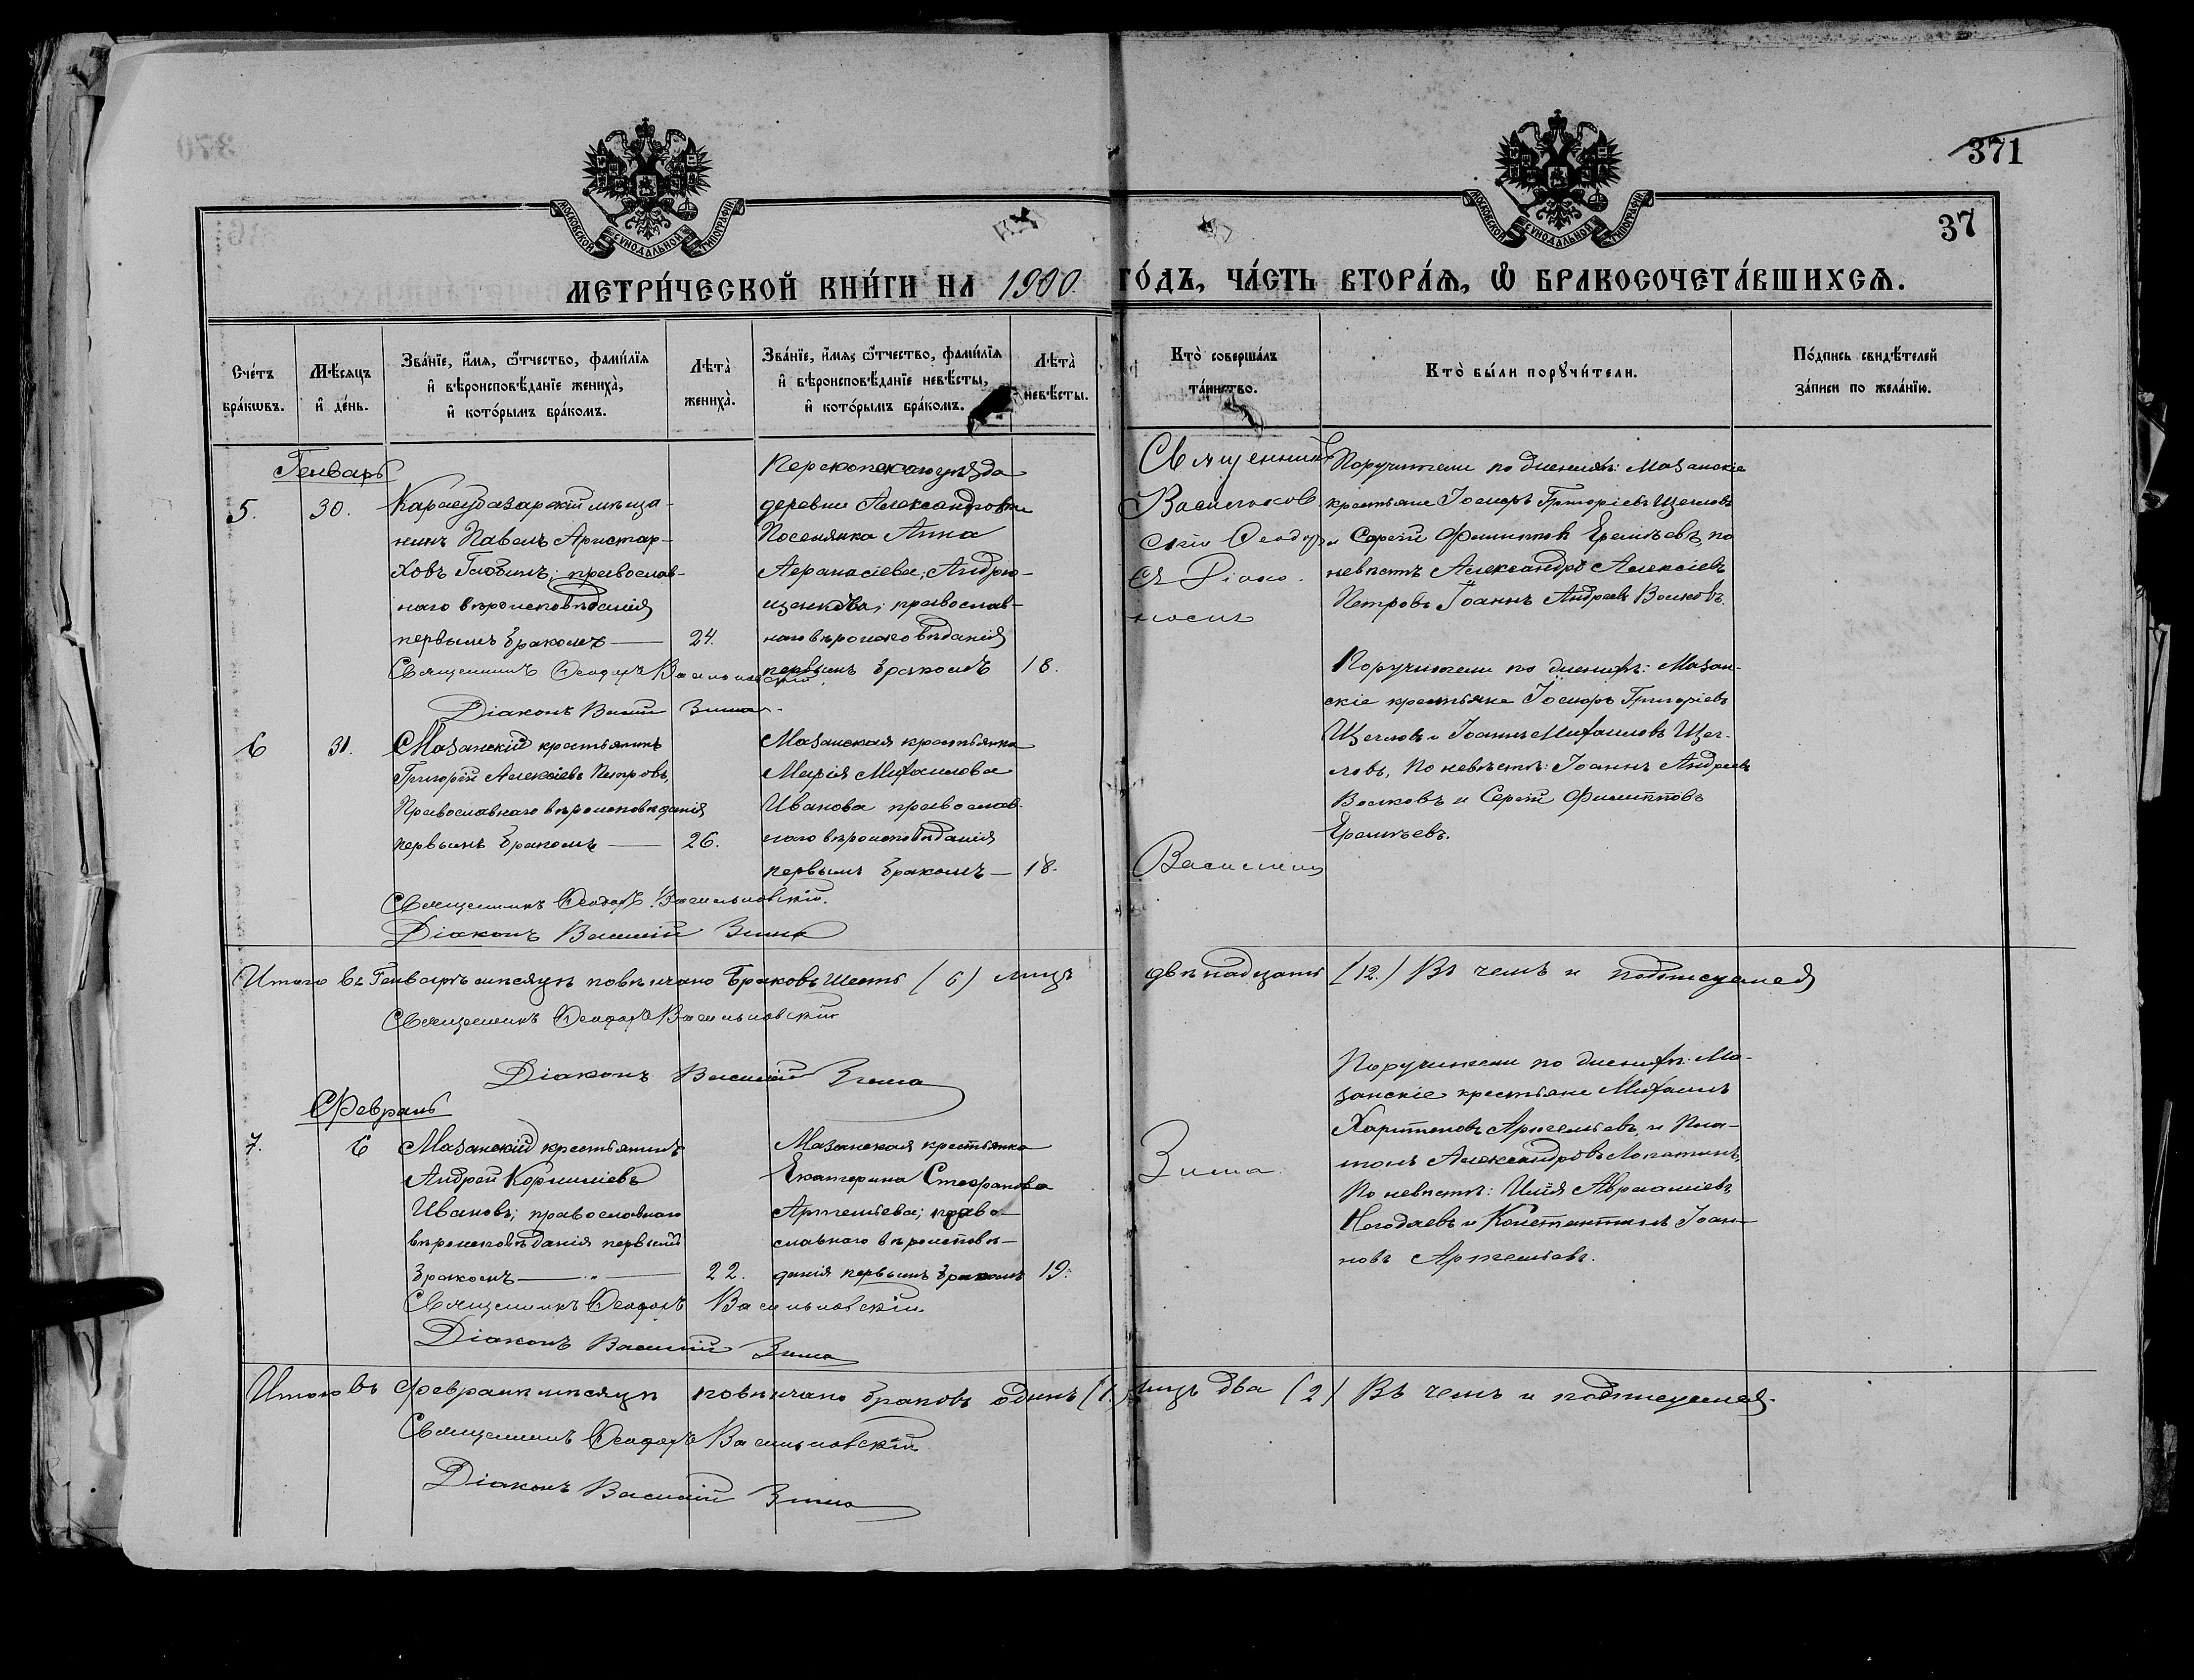 371
37
МОСКОВСКОЙ СѴНОДАЛЬНОЙ ТИПОГРАФІИ
МОСКОВСКОЙ СѴНОДАЛЬНОЙ ТИПОГРАФІИ
МЕТРИ́ЧЕСКОЙ КНИ́ГИ НА 1900 ГО́ДЪ, ЧА́СТЬ ВТОРА́Ѧ, Ѡ БРАКОСОЧЕТА́ВШИХСѦ.
Сче́тъ бра́кѡвъ.
Мѣ́сяцъ и҆ де́нь.
Зва́нїе, и҆́мя, ѻ҆́тчество, фами́лїя и҆ вѣроисповѣ́данїе жениха̀, и҆ кото́рымъ бра́комъ.
Лѣта̀ жениха̀.
Зва́нїе, и҆́мя, ѻ҆́тчество, фами́лїя и҆ вѣроисповѣ́данїе невѣ́сты, и҆ кото́рымъ бра́комъ.
Лѣта̀ невѣ́сты.
Кто̀ соверша́лъ та́инство.
Кто̀ бы́ли порꙋчи́тели.
По́дпись свидѣ́телей за́писи по жела́нїю.
Генварь
5.
30.
Карасубазарскій мѣща-
нинъ Павелъ Аристар-
ховъ православ-
наго вѣроисповѣданія
первымъ бракомъ
24.
Перекопскаго уѣзда
деревни Александровки
Поселянка Анна
Афанасіева, Андрю-
щенкова; православ-
наго вѣроисповѣданія
первымъ бракомъ
18.
Священникъ
Васильковс
кій Ѳеодоръ
Діако
Поручители по женихѣ: Мазанскіе
крестьяне Іосифъ Григоріевъ Щегловъ
и Сергій Филиповъ Еремѣевъ, по
невѣстѣ Александръ Алексіевъ
Петровъ Іоаннъ Андреевъ Волковъ.
Священникъ Ѳеодоръ Васильковскій
Діаконъ Василій Зима
6
31.
Мазанскій крестьянинъ
Григорій Алексіевъ Петровъ,
Православнаго вѣроисповѣданія
первымъ бракомъ
26.
Мазанская крестьянка
Марія Михаилова
Иванова православ-
наго вѣроисповѣданія
первымъ бракомъ
18.
Василій
Поручители по женихѣ: Мазан-
скіе крестьяне Іосифъ Григоріевъ
Щегловъ и Іоаннъ Михаиловъ Щег-
ловъ, По невѣстѣ: Іоаннъ Андреевъ
Волковъ и Сергій Филипповъ
Еремѣевъ.
Священникъ Ѳеодоръ Васильковскій.
Діаконъ Василій Зима
Итого въ Генварѣ мѣсяцѣ повѣнчано браковъ шесть (6) лицъ двѣнадцать (12.) Въ чемъ и подписуемся
Священникъ Ѳеодоръ Васильковскій
Діаконъ Василій Зима
Февраль
7.
6
Мазанскій крестьянинъ
Андрей Корниліевъ
Ивановъ; православнаго
вѣроисповѣданія первымъ
бракомъ
22.
Мазанская крестьянка
Екатерина Стефанова
Артемьева; право-
славнаго вѣроисповѣ-
данія первымъ бракомъ
19.
Зима
Поручители по женихѣ: Ма-
занскіе крестьяне Михаилъ
Харитоновъ Артемьевъ, и Пла-
тонъ Александровъ Лопатинъ,
По невѣстѣ: Илія Аврааміевъ
Ногодаевъ и Константинъ Іоан-
новъ Артемьевъ.
Священникъ Ѳеодоръ Васильковскій
Діаконъ Василій Зима
Итого въ Февралѣ мѣсяцѣ повѣнчано браковъ одинъ (1.) лицъ два (2) Въ чемъ и подписуемся.
Священникъ Ѳеодоръ Васильковскій
Діаконъ Василій Зима